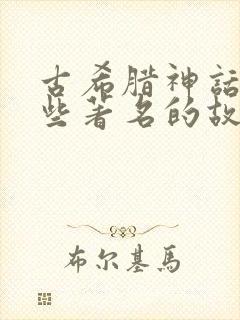 古希腊神話
些著名的故
布尔基馬